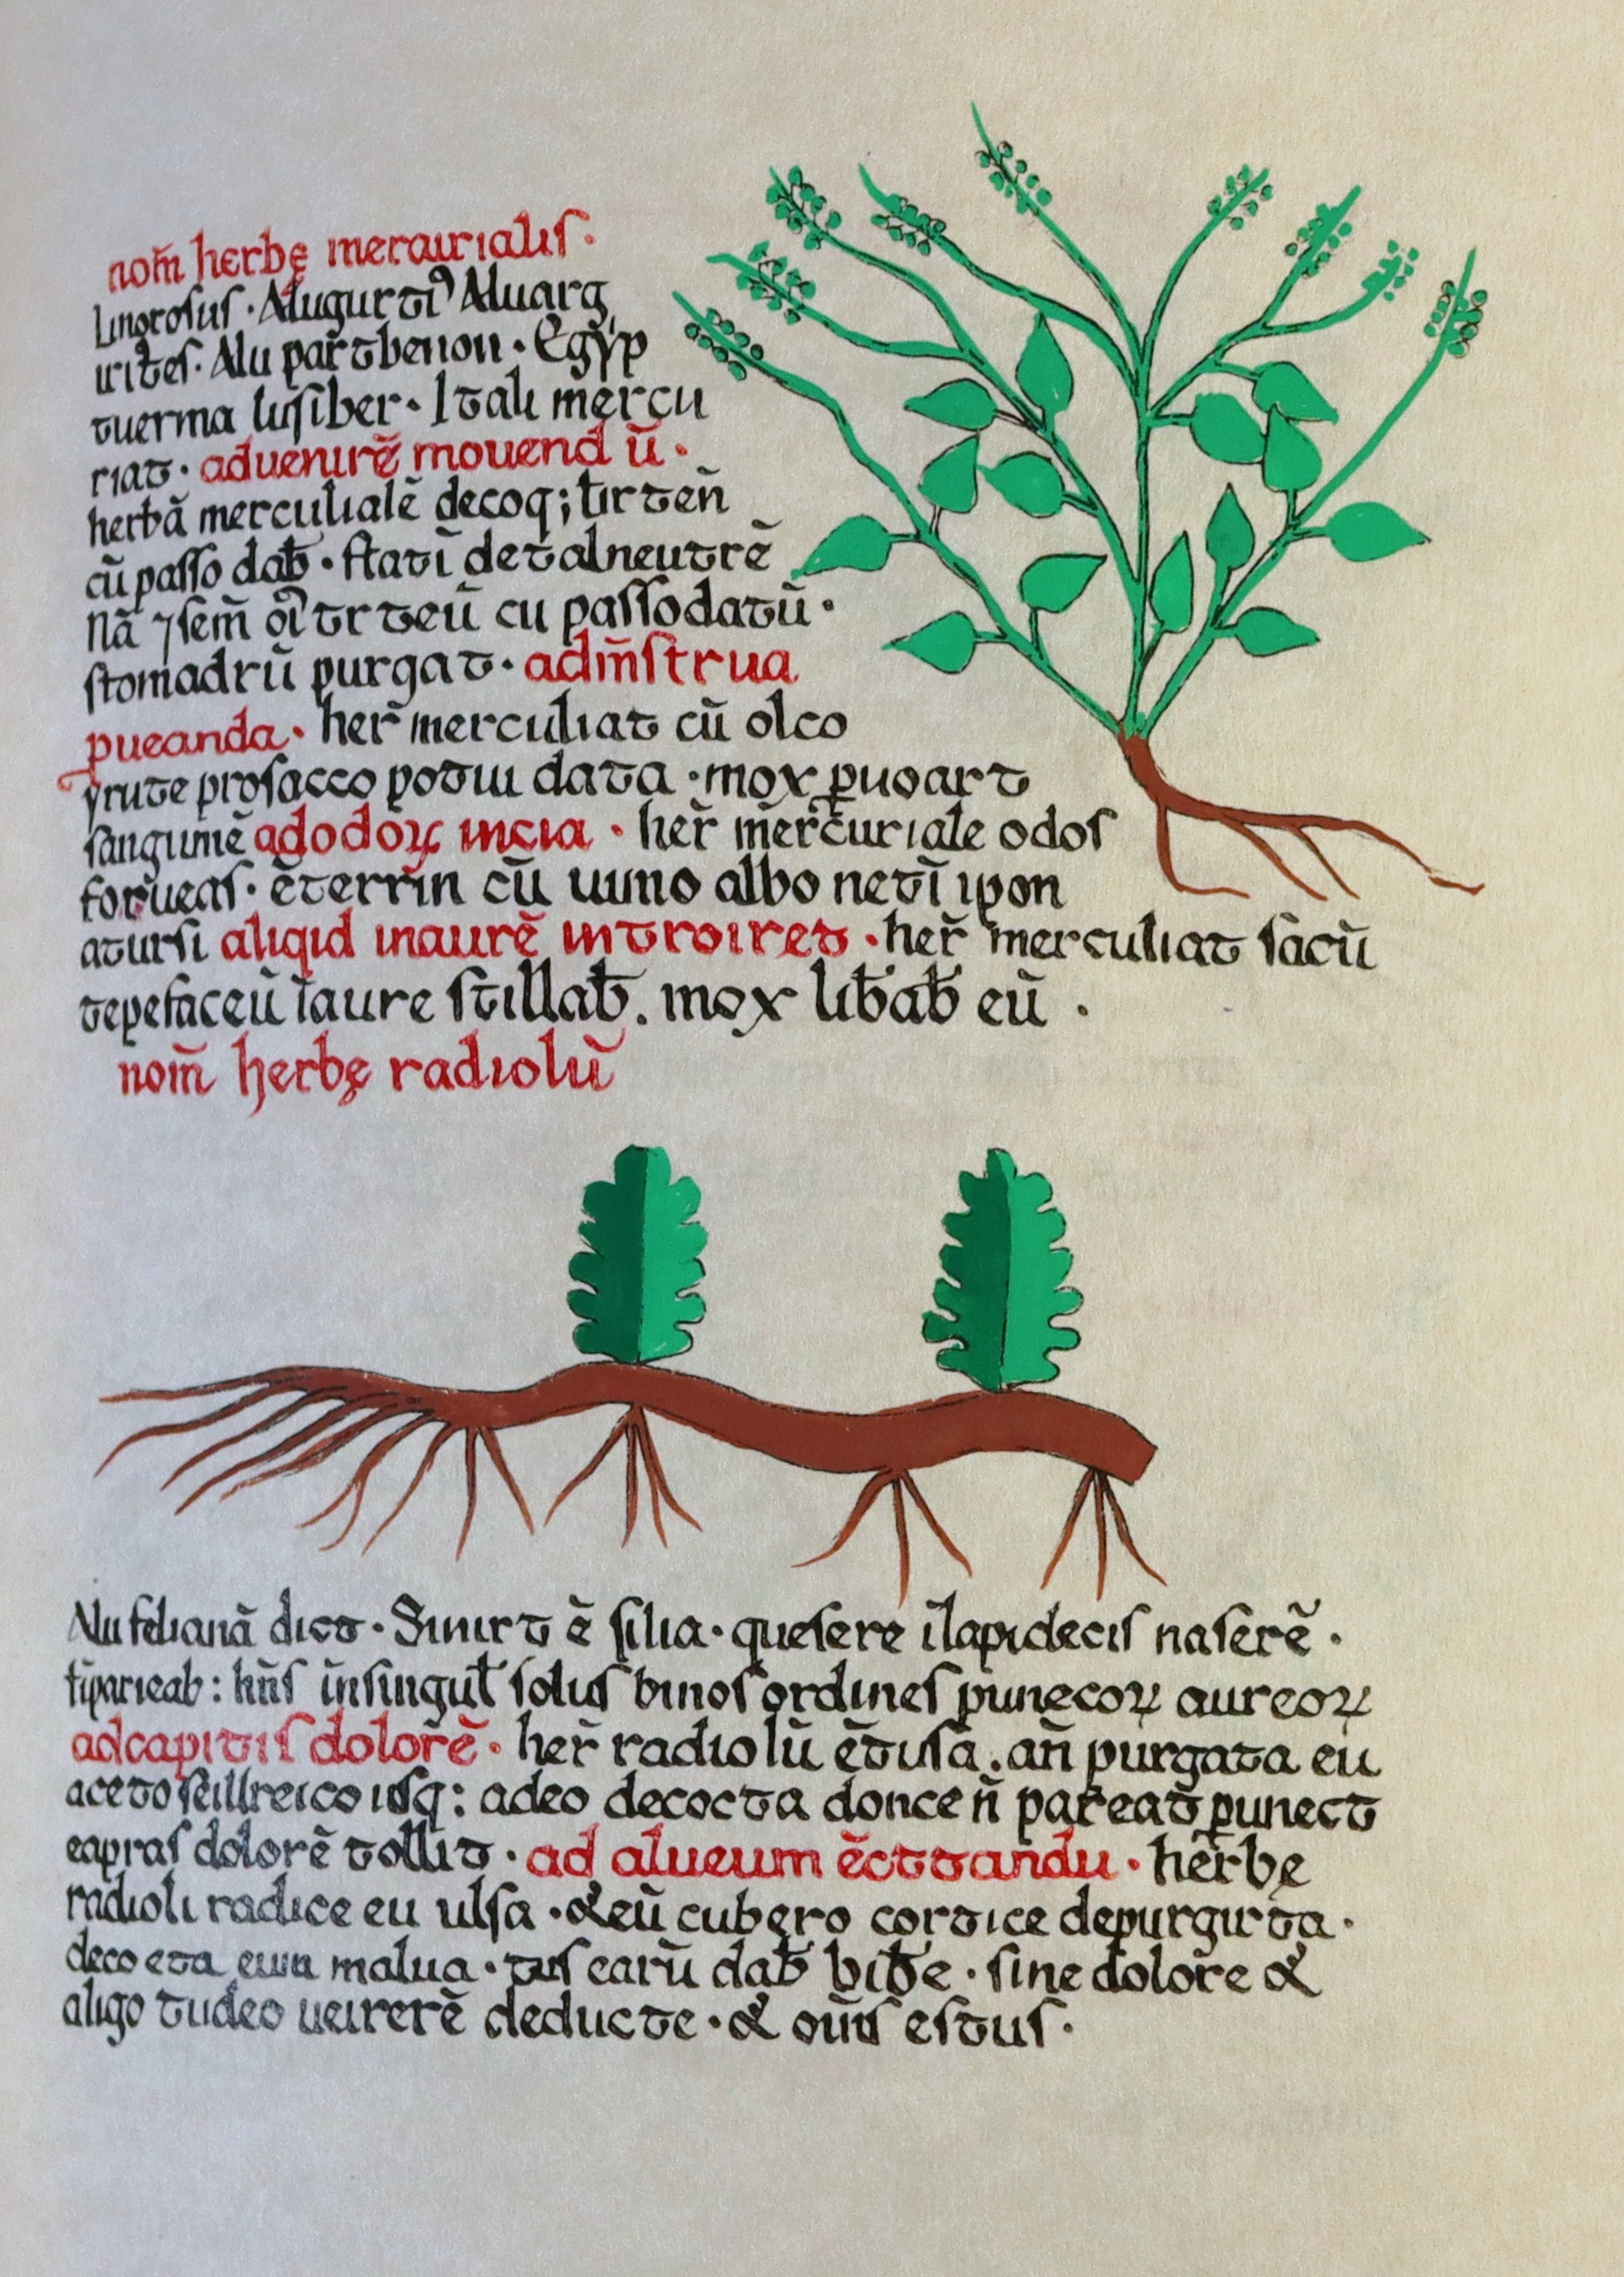 nom̄ herbę mercurialis·
linorosus· Alugurti⁹ Aluarg
uites· Alu parthenon· Egyp
tuerma lusiber· Itali mercu
riat· aduentrē mouend ū·
herbā merculialē decoq; tir teñ
cū passo dab̄· stati de talneutrē
Nā ⁊sem̄ qi tr teū cu passodatū·
stomadrū purgat· adm̄strua
pueanda· her̄ merculiat cū olco
yrute prosacco potui data· mox puoart
sanguinē adodoꝝ incia· her̄ mercuriale odos
forueas· ēterrin cū uino albo netī ipon
atursi aliqid inaurē introiret· her̄ merculiat sācū
tepefaceū īaure stillab̄. mox lib̄ab̄ eū·
nom̄ herbę radiolū
Alu filianā dict· Simirt ē silia· quesere īlapidecis naserē·
tīparieab: hñs insingul̄ solus binos ordines punecoꝝ aureoꝝ
adcapitis dolorē· her̄ radiolū ētusā. añ purgata eu
aceto seillreico usq: adeo decocta donce ñ pareat punect
eapras dolorē tollit· ad alueum ēcttandu· herbę
radioli radice eu ulsa· &eū cubero cortice depurgirta·
deco eta eum malua· tus earū dab̄ bib̄e· sine dolore &
aligo tudeo ueirerē deducte· & oūīs estus·